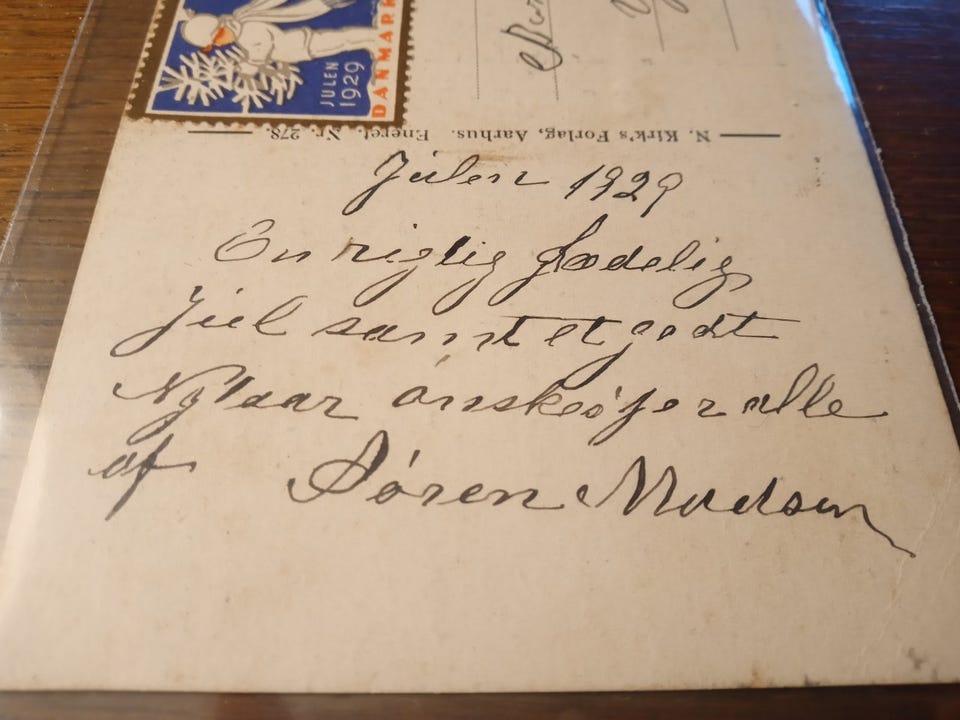 JULEN
1929
DANMARK
N. Kirk's Forlag, Aarhus. Eneret. Nr. 278.
Julen 1929
En rigtig glædelig
Jul samt et godt
Nytaar ønskes jer alle
af Søren Madsen